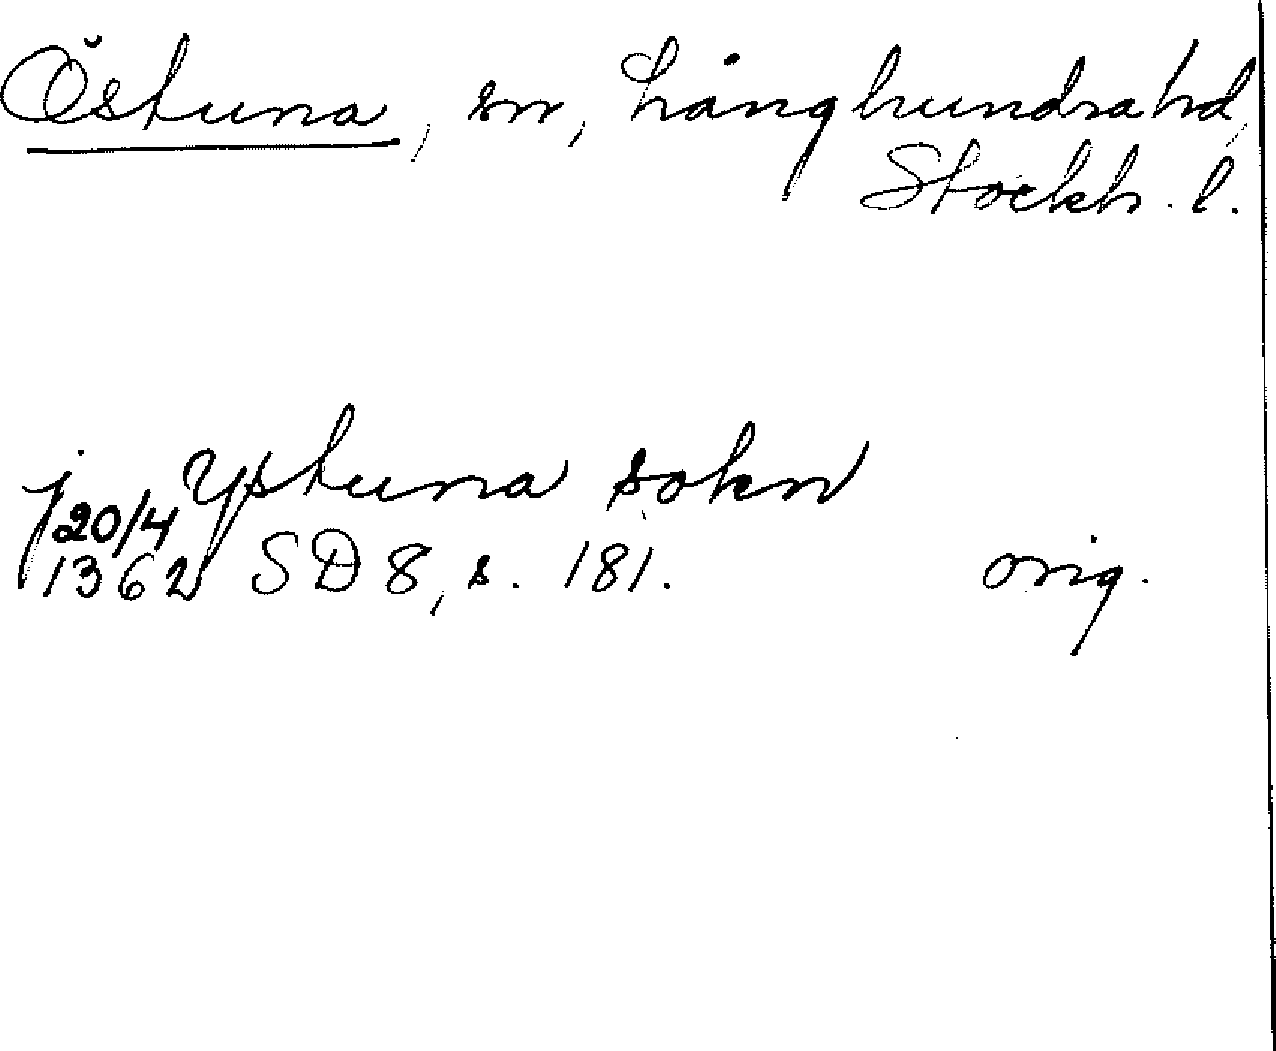 Östuna, sn, Långhundra hd,
Stockh. l.
j Ystuna sokn
20/4
1362 SD 8, s. 181. orig.